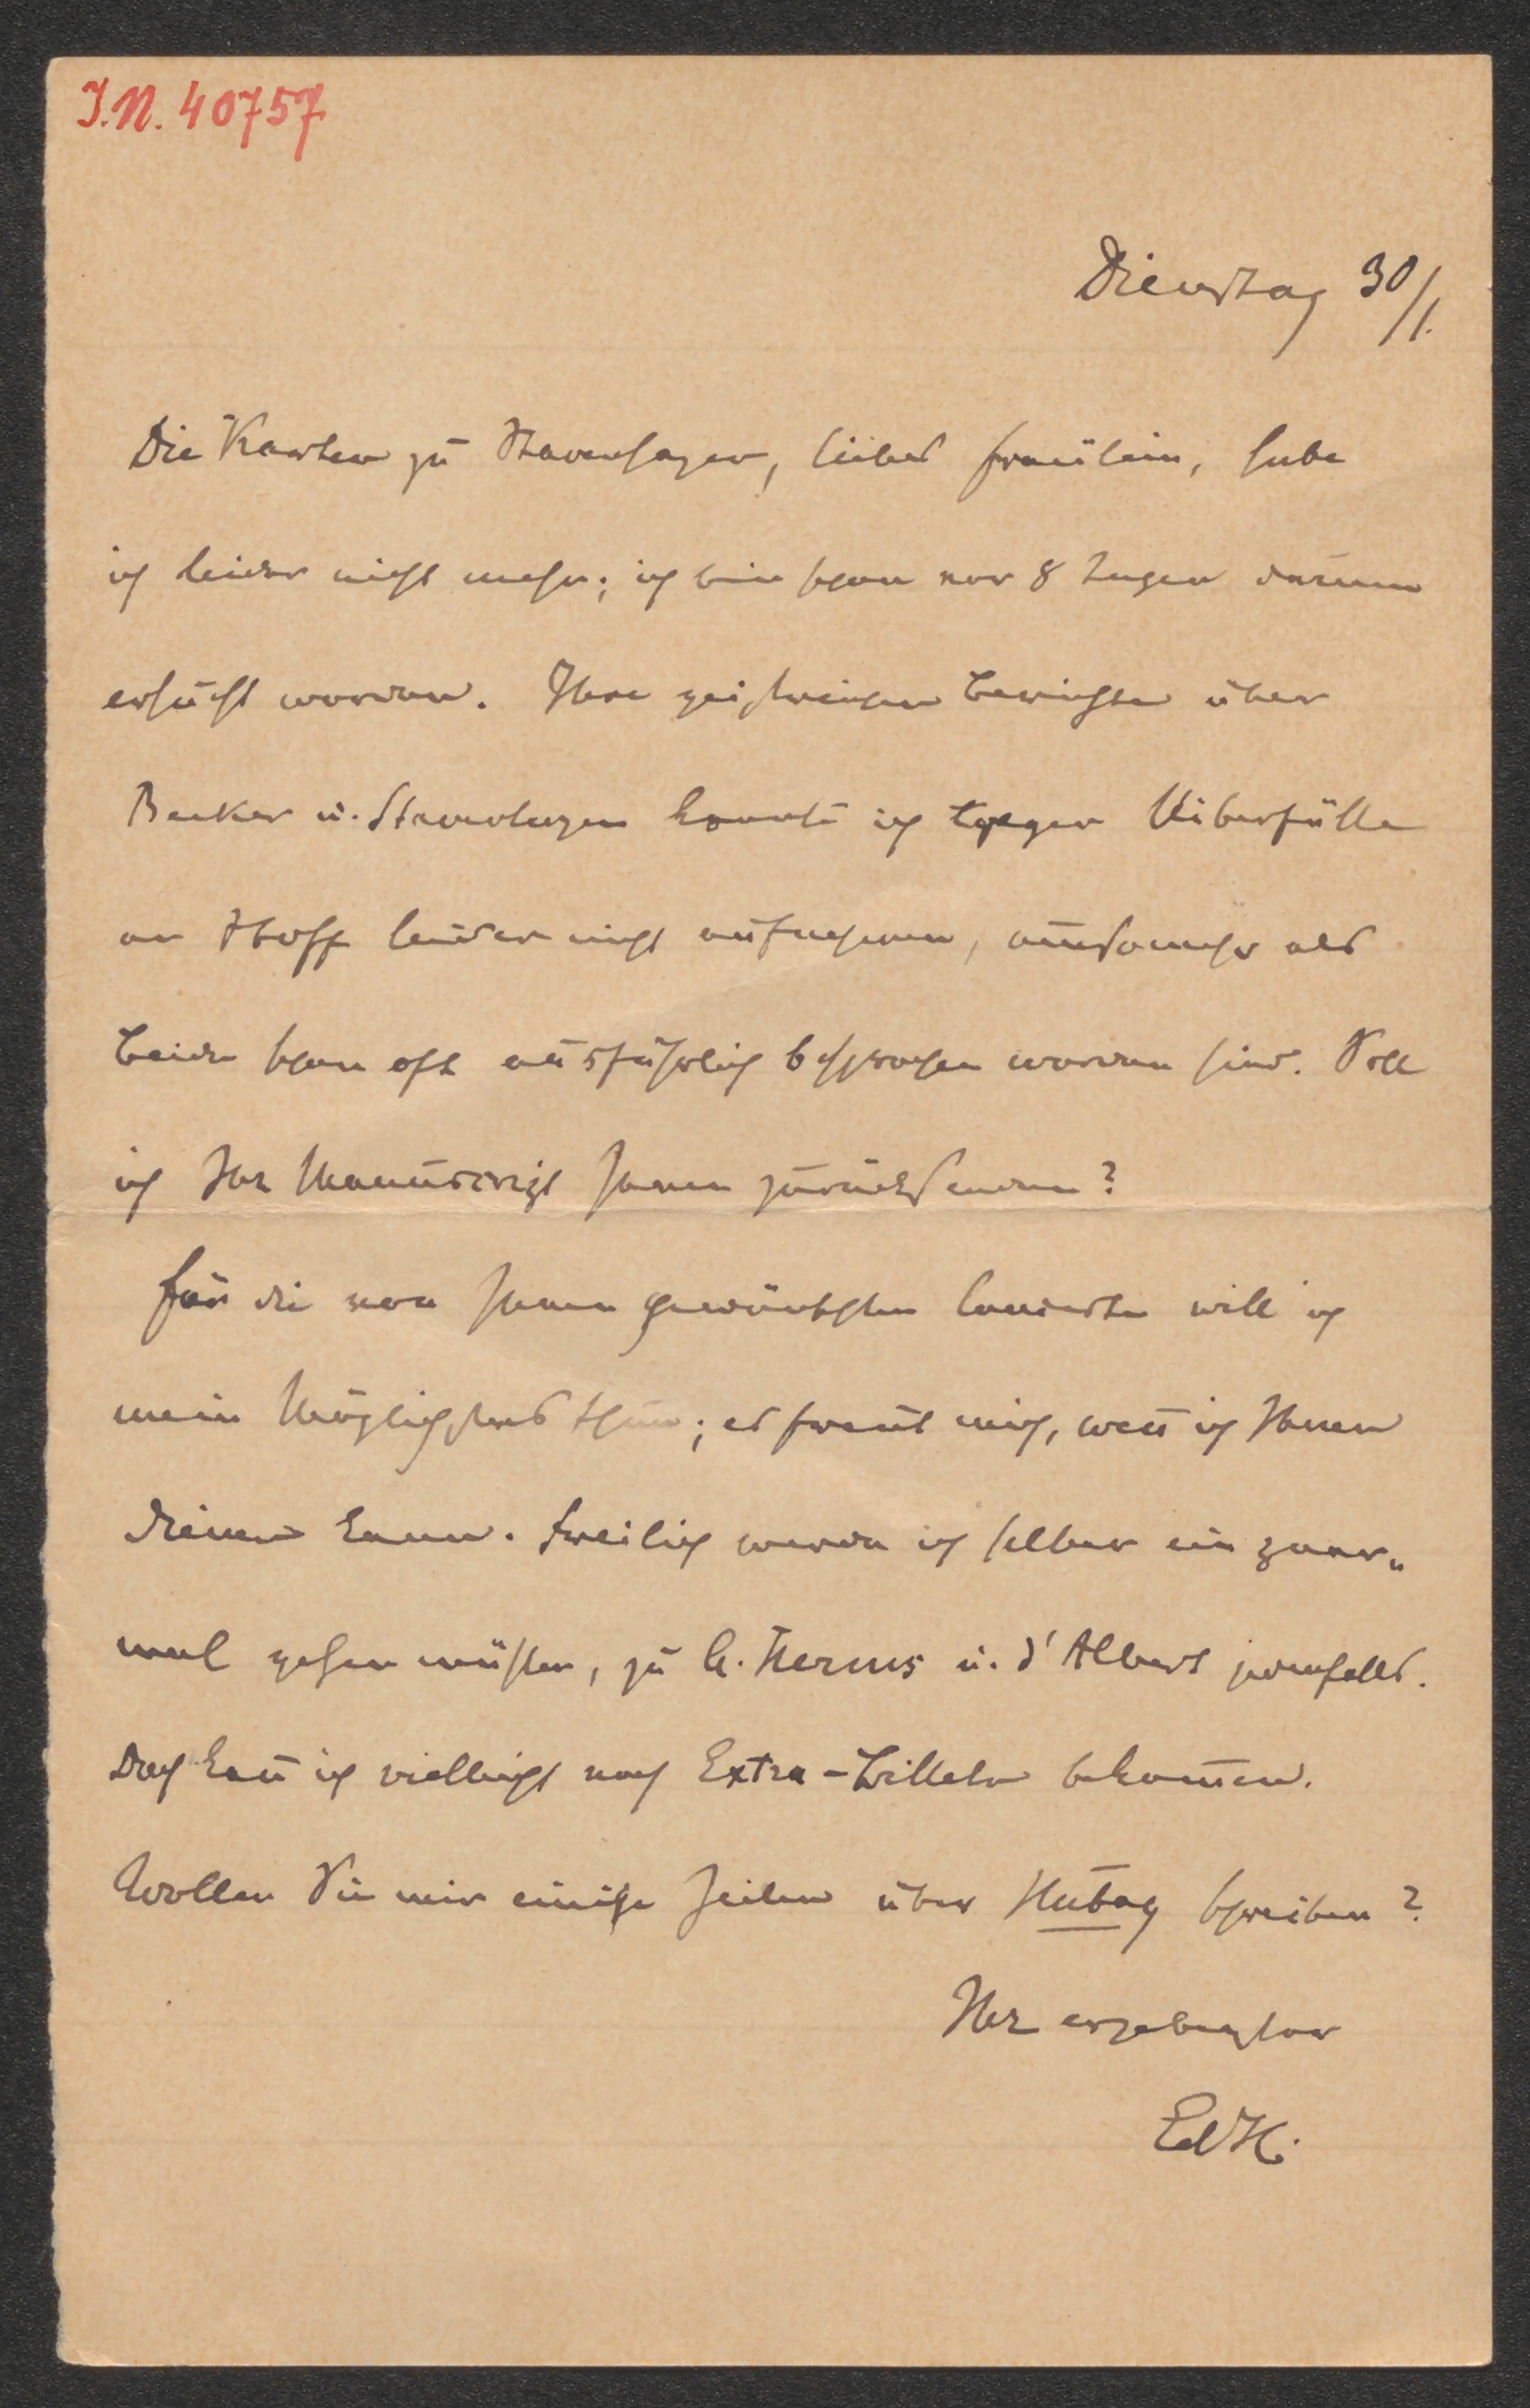 I.N. 40757
Dienstag 30/1.
Die Karten zu Stavenhagen, liebes Fräulein, habe
ich leider nicht mehr; ich bin schon vor 8 Tagen darum
ersucht worden. Ihre geistreichen Berichte über
Becker u. Stavenhagen konnte ich wegen Uiberfülle
an Stoff leider nicht aufnehmen, umsomehr als
beide schon oft ausführlich besprochen worden sind. Soll
ich Ihr Manuscript Ihnen zurücksenden?
Für die von Ihnen gewünschten Concerte will ich
mein Möglichstes thun; es freut mich, weñ ich Ihnen
dienen kann. Freilich werde ich selber ein paar-
mal gehen müssen, zu u. d'Albert jedenfalls.
Doch kañ ich vielleicht noch Extra-Billete bekom̄en.
Wollen Sie mir einige Zeilen über schreiben?
Ihr ergebenster
EdH.